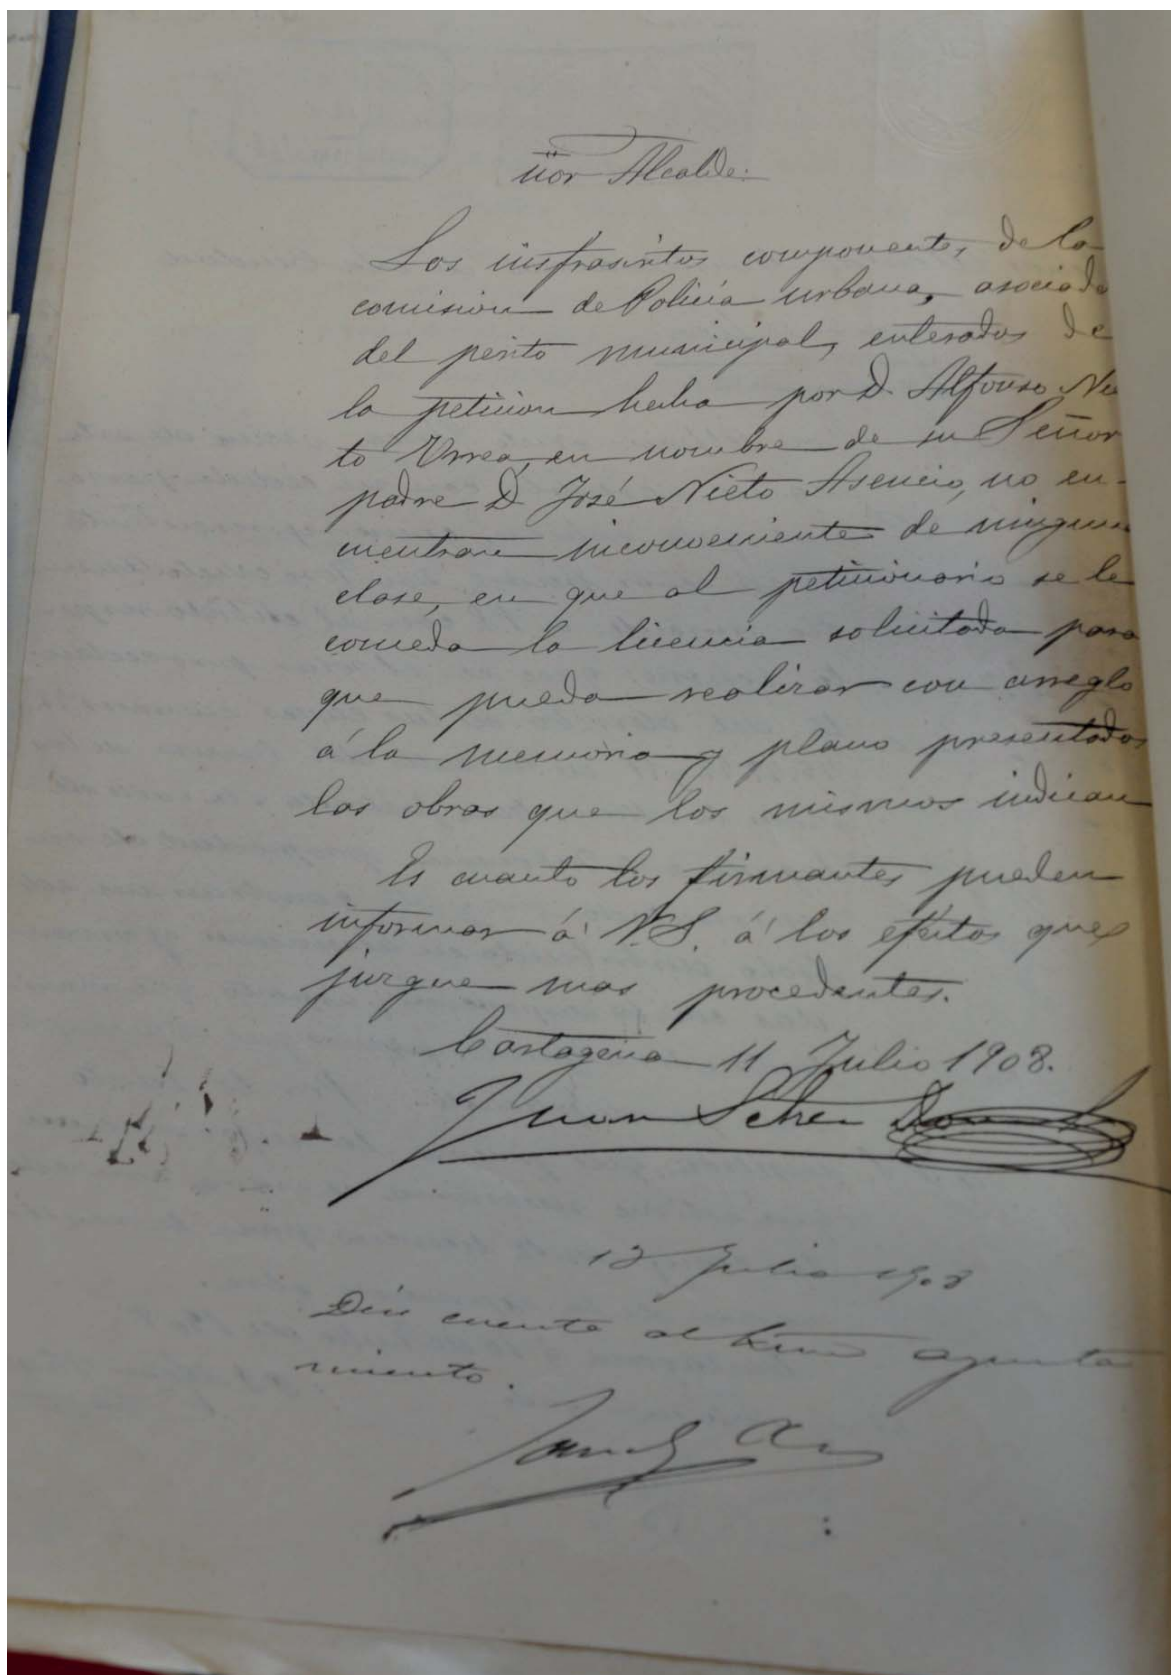 ñor Alcalde:
Los insfrascritos componentes de la
comision de Policía urbana, asociado
del perito municipal, enterados de
la peticion hecha por D. Alfonso Nie
to Urrea, en nombre de su Señor
padre D. José Nieto Asencio, no en-
cuentran inconveniente de ninguna
clase, en que al peticionario se le
conceda la licencia solicitada para
que pueda realizar con arreglo
á la memoria y plano presentados
las obras que los mismos indican
Es cuanto los firmantes pueden
informar á V.S. á los efectos que
juzgue mas procedentes.
Cartagena 11 Julio 1908.
Juan
12 Julio 1908
Dése cuenta al Exmo ayunta
miento.